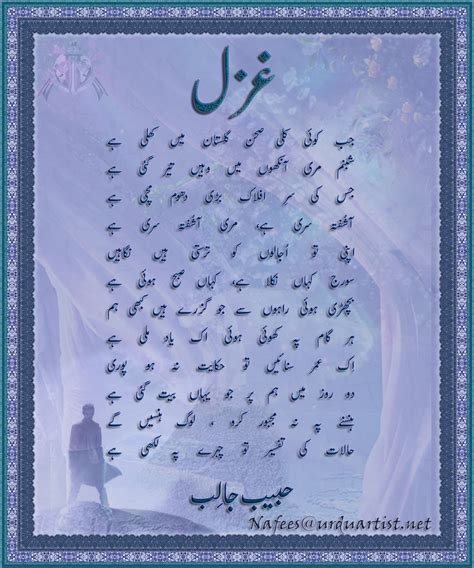 غزل
جب کوئی کلی صحن گلستان میں کھلی ہے
شبنم مری آنکھوں میں وہیں تیر گئی ہے
جس کی سر افلاک بڑی دھوم مچی ہے
آشفتہ سری ہے، مری آشفتہ سری ہے
اپنی تو اجالوں کو ترستی ہیں نگاہیں
سورج کہاں نکلا ہے، کہاں صبح ہوئی ہے
بچھڑی ہوئی راہوں سے جو گزرے ہیں کبھی ہم
ہر گام پہ کھوئی ہوئی اک یاد ملی ہے
اِک عمر سنائیں تو حکایت نہ ہو پوری
دو روز میں ہم پر جو یہاں بیت گئی ہے
ہنسنے پہ نہ مجبور کرو، لوگ ہنسیں گے
حالات کی تفسیر تو چہرے پہ لکھی ہے
حبیب جالِب
Nafees@urduartist.net